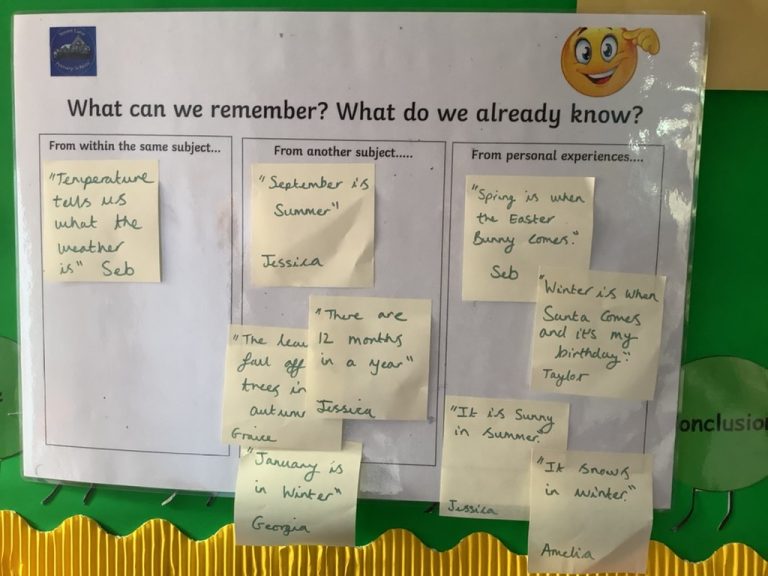 Primary School
What can we remember? What do we already know?
From within the same subject...
"Temperature
tells us
what the
weather
is" Seb
From another subject.....
"September is
Summer"
Jessica
"There are
12 months
in a year"
Jessica
"The
fall off
trees in
autumn
Grace
"January is
in Winter"
Georgia
From personal experiences....
"Spring is when
the Easter
Bunny comes."
Seb
"Winter is when
Santa comes
and it's my
birthday."
Taylor
"It is Sunny
in summer."
Jessica
"It snows
in winter."
Amelia
onclusion